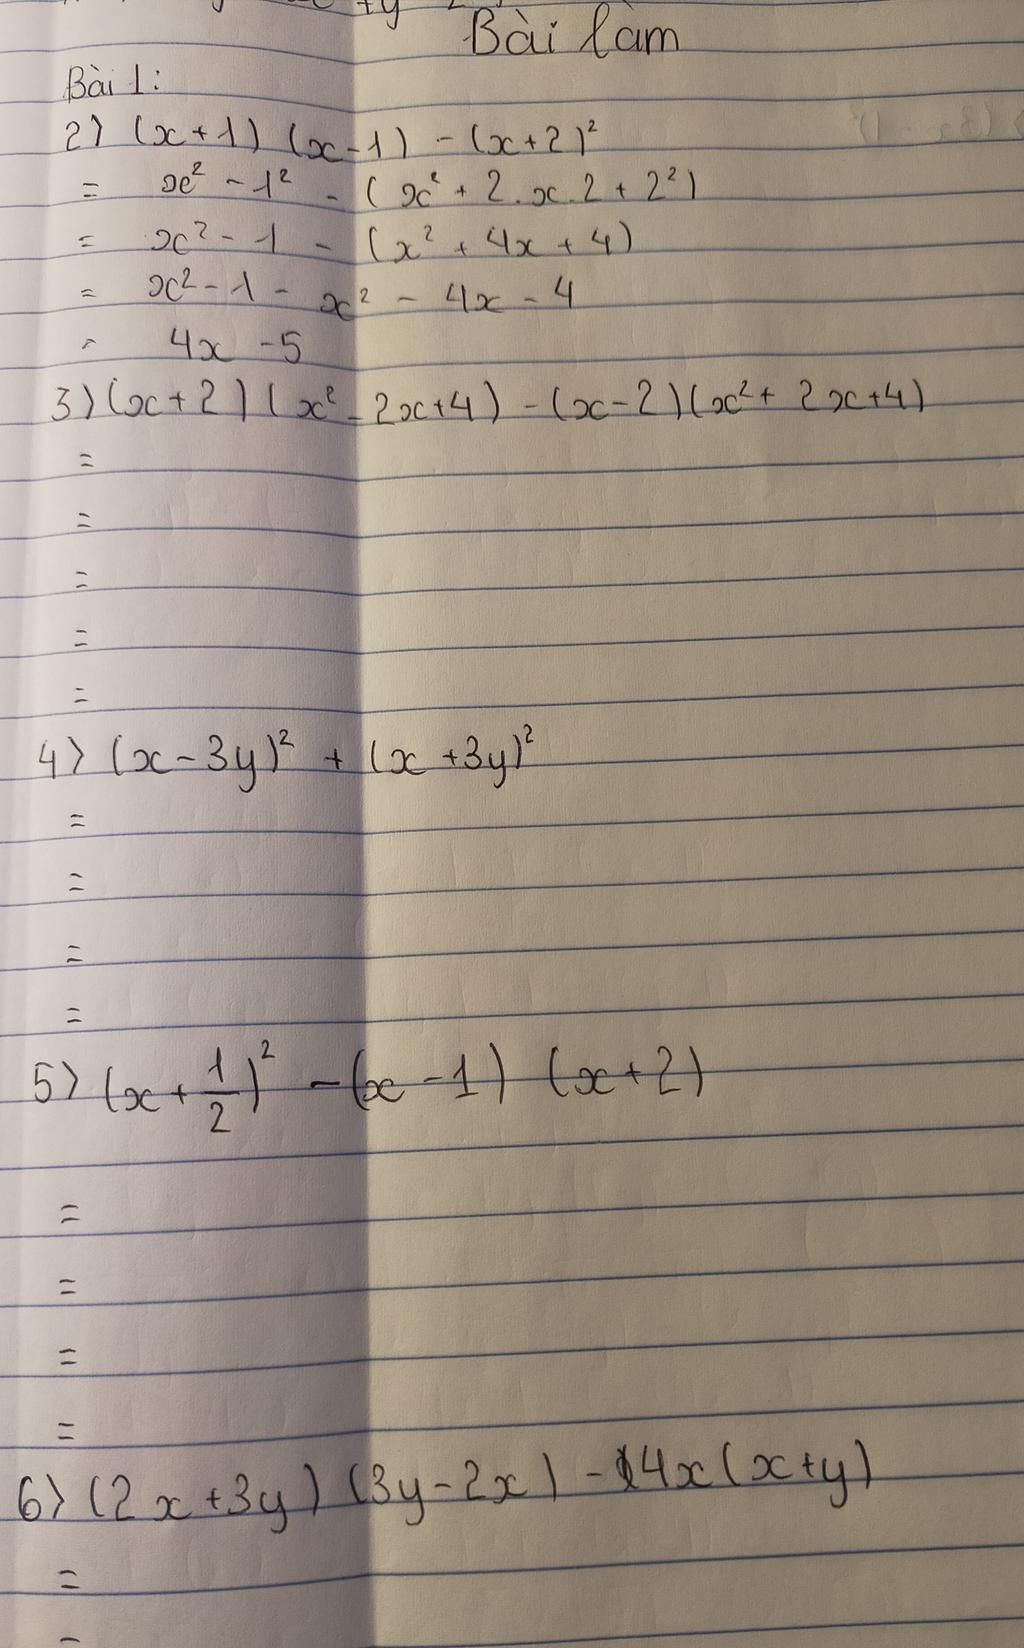 Bài làm
Bài 1:
2) (x+1) (x-1) - (x+2)²
= x² - 1² - (x² + 2.x.2 + 2²)
= x² - 1 - (x² + 4x + 4)
= x² - 1 - x² - 4x - 4
= 4x - 5
3) (x+2) (x² - 2x+4) - (x-2) (x² + 2x+4)
=
=
=
=
=
4) (x-3y)² + (x+3y)²
=
=
=
=
5) (x + 1/2)² - (x-1) (x+2)
=
=
=
=
6) (2x+3y) (3y-2x) - 4x(x+y)
=